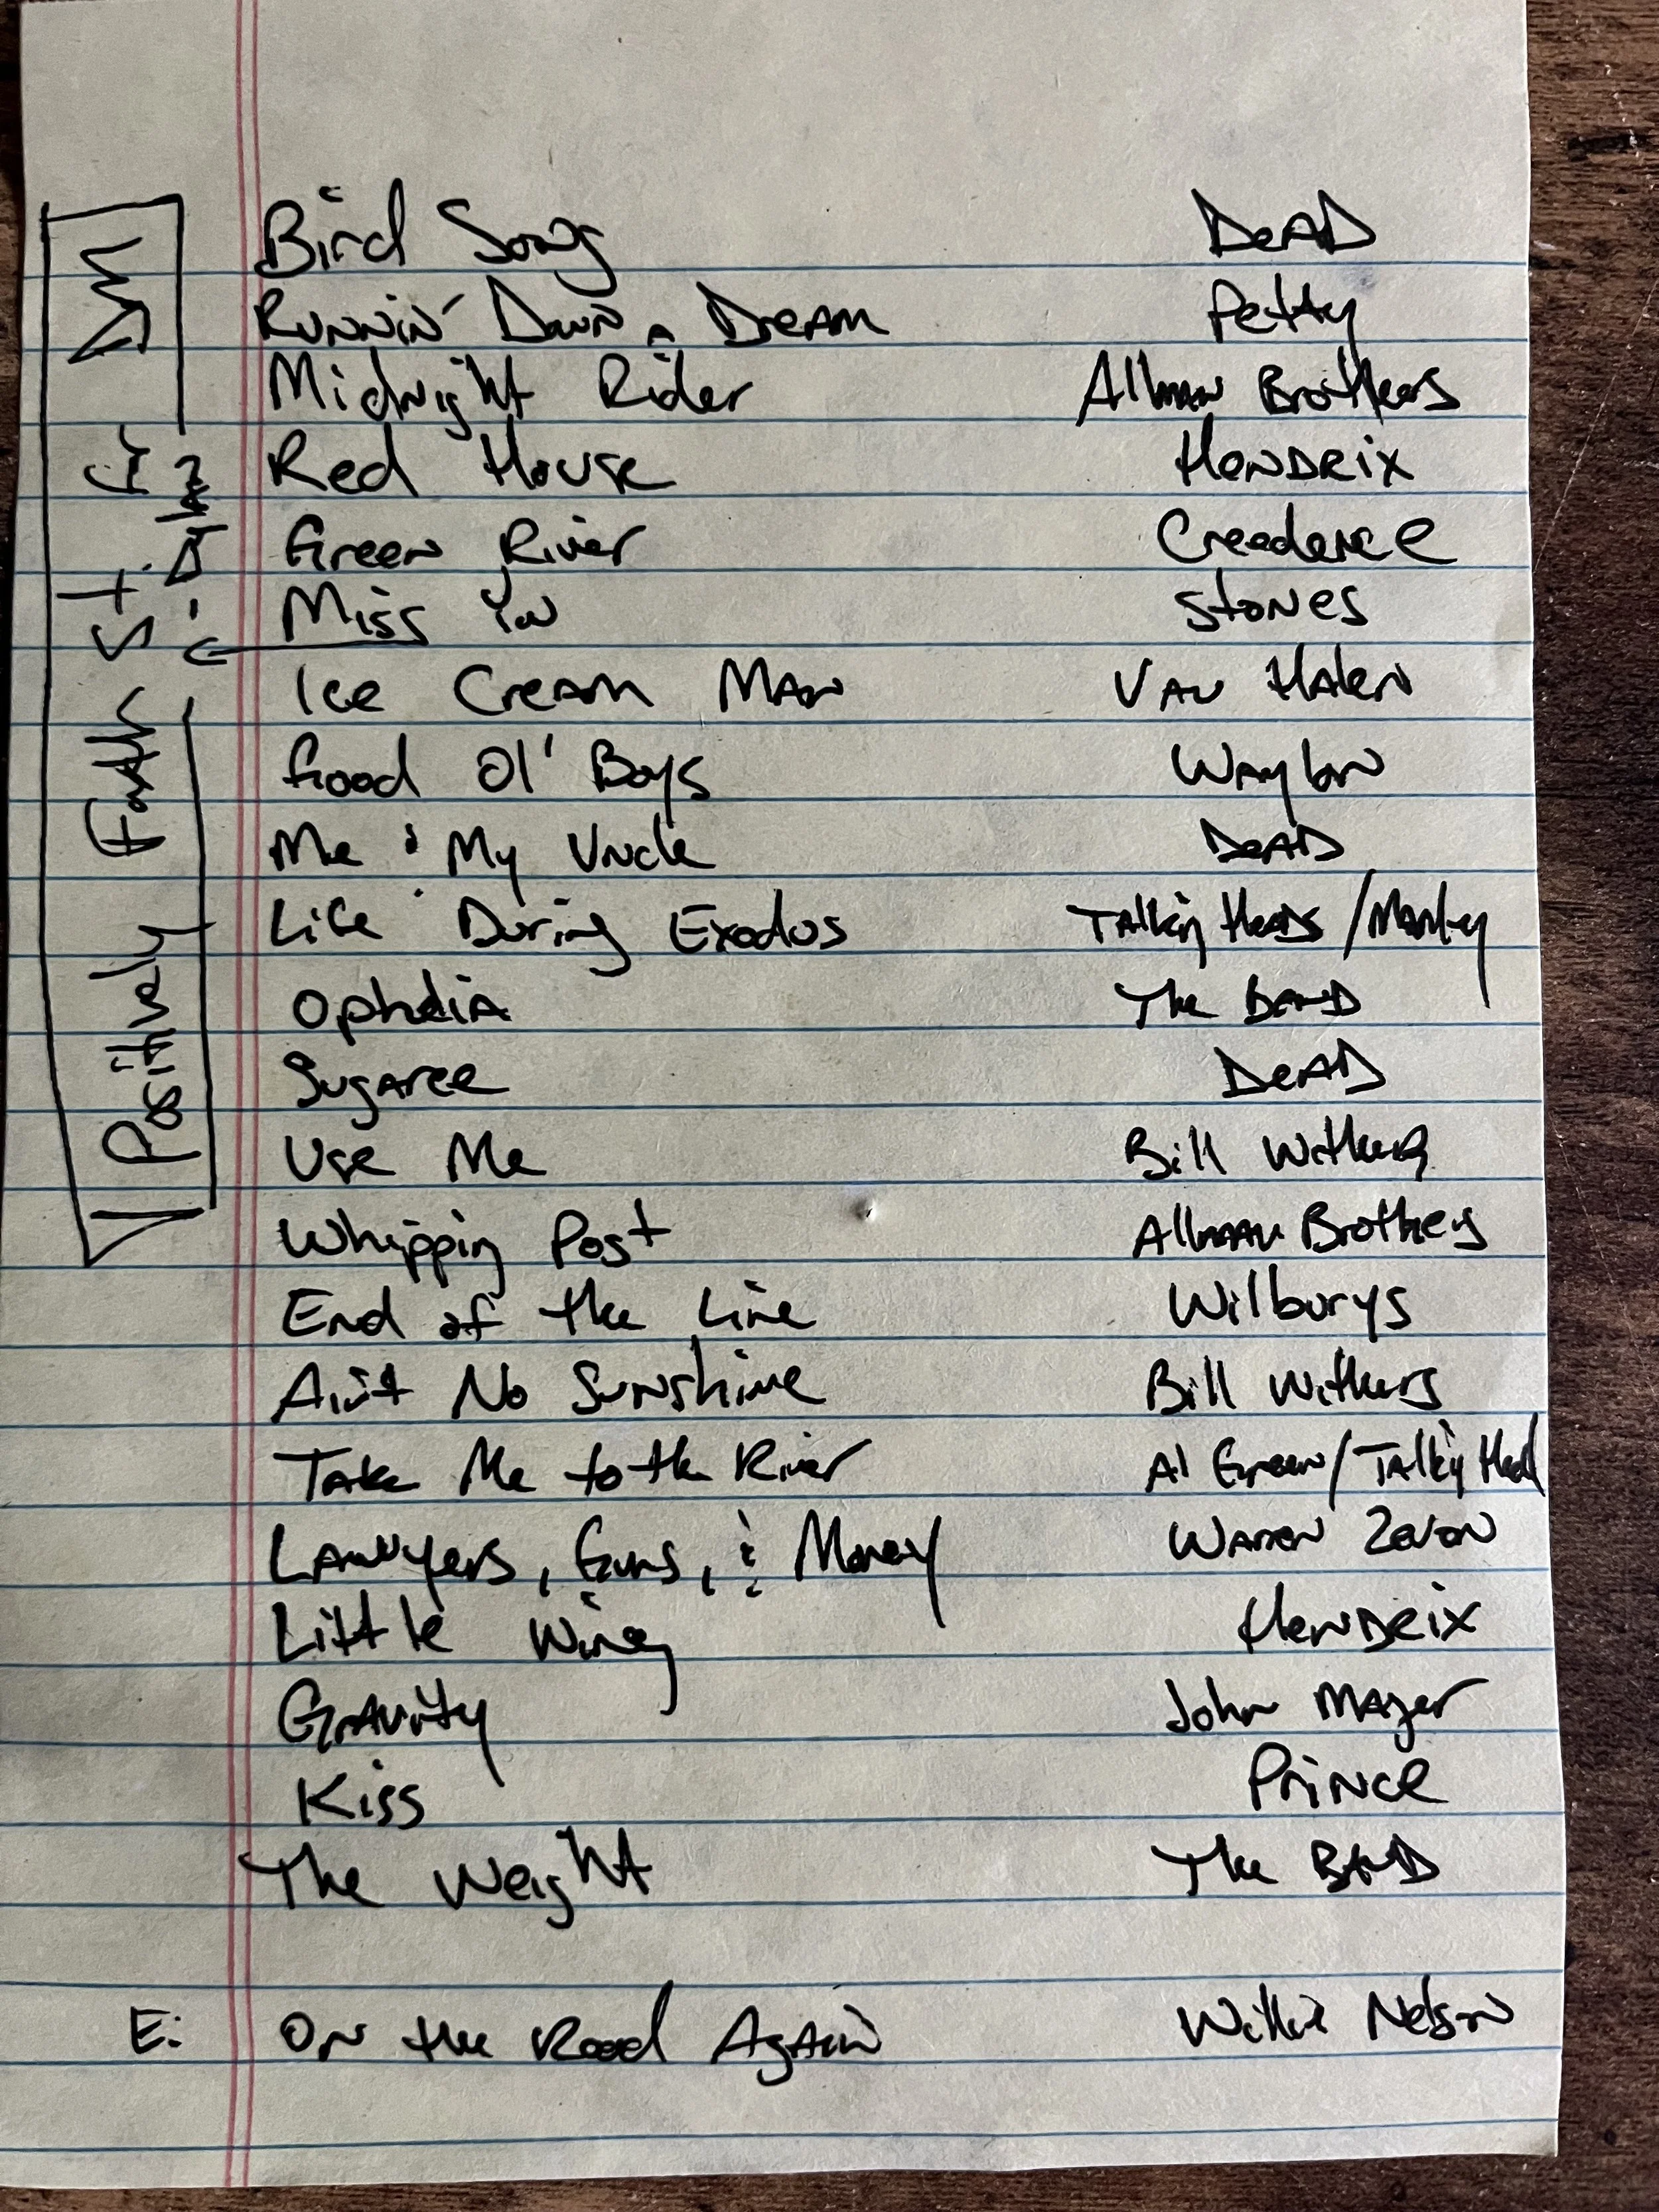 Bird Song Dead
Runnin' Down a Dream Petty
Midnight Rider Allman Brothers
Red House Hendrix
Green River Creedence
Miss You Stones
Ice Cream Man Van Halen
Good Ol' Boys Waylon
Me & My Uncle Dead
Life During Exodus Talkin Heads / Marley
Ophelia The Band
Sugaree Dead
Use Me Bill Withers
Whipping Post Allman Brothers
End of the Line Wilburys
Ain't No Sunshine Bill Withers
Take Me to the River Al Green / Talkin Head
Lawyers, Guns, & Money Warren Zevon
Little Wing Hendrix
Gravity John Mayer
Kiss Prince
The Weight The Band
E: On the Road Again Willie Nelson
Positively Fourth St.
- Dylan